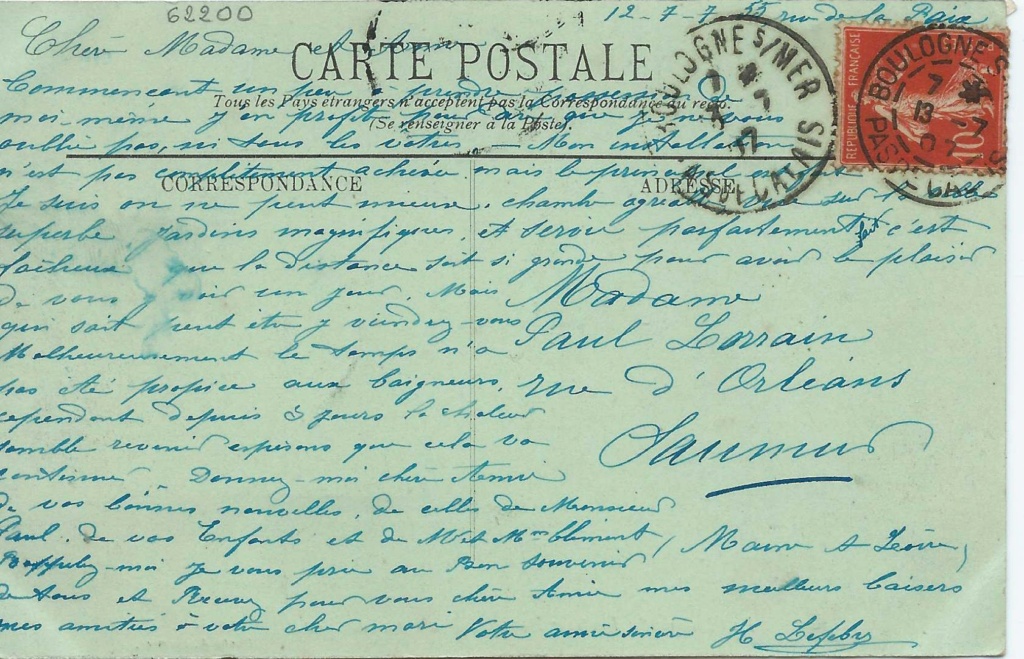 62200
12-7-7 55 rue de la Paix
Chère Madame et Amie
CARTE POSTALE
Commencant un peu à prendre
Tous les Pays étrangers n'acceptent pas la Correspondance au recto.
moi même j'en profite pour que je ne vous
(Se renseigner à la Poste).
oublie pas, ni tous les votres - Mon installation
n'est pas complètement achevée mais le principal
CORRESPONDANCE
ADRESSE
Je suis on ne peut mieux, chambre agréable vue sur
superbe, jardins magnifiques, et service parfaitement fait c'est
fâcheux que la distance soit si grande pour avoir le plaisir
de vous y voir un jour, Mais
qui sait peut être y viendrez-vous
Malheureusement le temps n'a
pas été propice aux baigneurs,
cependant depuis 3 jours la chaleur
semble revenir esperons que cela va
continuer - Donnez-moi chère Amie
de vos bonnes nouvelles, de celles de Monsieur
Paul, de vos Enfants et de M et Mme
Rappelez-moi je vous prie au Bon souvenir
de tous et Recevez pour vous chère Amie mes meilleurs baisers
mes amitiés à votre cher mari Votre amie sincère H Lefebvre
Madame
Paul Lorrain
rue d'Orléans
Saumur
Maine & Loire
BOULOGNE S/MER
PAS DE CALAIS
REPUBLIQUE FRANÇAISE
10
BOULOGNE S
PAS DE CALAIS